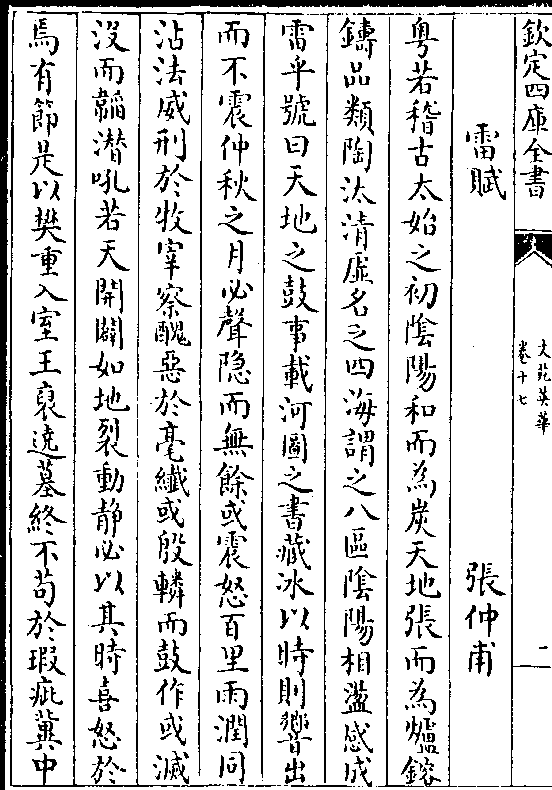 欽定四庫全書
文苑英華
卷十七
二
雷賦
張仲甫
粤若稽古太始之初隂陽和而為炭天地張而為爐鎔
鑄品類陶汰清虚名之四海謂之八區隂陽相盪感成
雷乎號曰天地之鼓事載河圖之書藏冰以時則響出
而不震仲秋之月必聲隐而無餘或震怒百里雨潤同
沾法威刑於牧宰察醜惡於毫纖或殷轔而鼓作或滅
没而韜潜吼若天開闢如地裂動静必以其時喜怒於
焉有節是以樊重入室王裒遶墓終不苟於瑕疵冀中